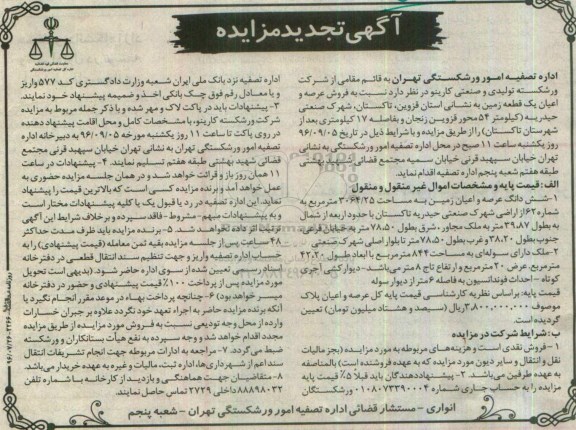 آگهی تجدید مزایده
اداره تصفیه امور ورشکستگی تهران به قائم مقامی از شرکت
ورشکسته تولیدی و صنعتی کارینو در نظر دارد نسبت به فروش عرصه و
اعیان یک قطعه زمین به نشانی استان قزوین، تاکستان، شهرک صنعتی
حیدریه (کیلومتر ۵۴ محور قزوین زنجان و بفاصله ۱۷ کیلومتری بعد از
شهرستان تاکستان) را از طریق مزایده و با شرایط ذیل در تاریخ ۹۶/۰۹/۰۵
روز یکشنبه ساعت ۱۱ صبح در محل اداره تصفیه امور ورشکستگی به نشانی
تهران خیابان سپهبد قرنی خیابان سمیه مجتمع قضائی شهید بهشتی
طبقه هفتم شعبه پنجم اداره تصفیه اقدام نماید.
الف: قیمت پایه و مشخصات اموال غیر منقول و منقول
۱- شش دانگ عرصه و اعیان زمین به مساحت ۳۰۶۴/۲۵ مترمربع به
شماره ۶۲ از اراضی شهرک صنعتی حیدریه تاکستان با حدود اربعه از شمال
به بطول ۳۹.۸۷ متر به ملک مجاور، شرق بطول ۷۸.۵۰ متر به خیابان فرعی
جنوب بطول ۳۸.۲۰ و غرب بطول ۷۸.۵۰ متر تا بلوار اصلی شهرک صنعتی
۲- ملک دارای سوله‌ای به مساحت ۸۴۴ مترمربع با ابعاد طول ۴۲.۲۰
مترمربع، عرض ۲۰ مترمربع و ارتفاع تاج ۸ متر می‌باشد - دیوارکشی آجری
کوتاه - احداث فونداسیون به فاصله ۶ متر از دیوار سوله
قیمت پایه: براساس نظریه کارشناسی قیمت پایه کل عرصه و اعیان پلاک
موصوف ۳,۸۰۰,۰۰۰,۰۰۰ ریال (سیصد و هشتاد میلیون تومان) تعیین
گردیده است
ب: شرایط شرکت در مزایده
۱- فروش نقدی است و هزینه‌های مربوطه به مورد مزایده (بجز مالیات
نقل و انتقال و سایر دیون مورد مزایده که به عهده فروشنده است) بالمناصفه
به عهده طرفین می‌باشد. ۲- پیشنهاددهندگان باید قبلاً ۵٪ قیمت پایه
مزایده را به حساب جاری شماره ۰۱۰۸۰۷۳۳۹۰۰۰۴ ورشکستگان
اداره تصفیه نزد بانک ملی ایران شعبه وزارت دادگستری کد ۵۷۷ واریز
و یا معادل رقم فوق چک بانکی اخذ و ضمیمه پیشنهاد خود نمایند.
۳- پیشنهادات باید در پاکت لاک و مهر شده و با ذکر جمله مربوط به مزایده
شرکت ورشکسته کارینو، با مشخصات کامل و محل اقامت پیشنهاد دهنده
در روی پاکت تا ساعت ۱۱ روز یکشنبه مورخه ۹۶/۰۹/۰۵ به دبیرخانه اداره
تصفیه امور ورشکستگی تهران به نشانی تهران خیابان سپهبد قرنی مجتمع
قضائی شهید بهشتی طبقه هفتم تسلیم نمایند. ۴- پیشنهادات در ساعت
۱۱ همان روز باز و قرائت خواهد شد و در همان جلسه مزایده حضوری به
عمل خواهد آمد و برنده مزایده کسی است که بالاترین قیمت را پیشنهاد
نماید. این اداره تصفیه در رد یا قبول یک یا کلیه پیشنهادات مختار است
و به پیشنهادات مبهم - مشروط - فاقد سپرده و برخلاف شرایط این آگهی
ترتیب اثر داده نخواهد شد. ۵- برنده مزایده باید ظرف مدت حداکثر
۴۸ ساعت پس از جلسه مزایده بقیه ثمن معامله (قیمت پیشنهادی) را به
حساب اداره تصفیه واریز و جهت تنظیم سند انتقال قطعی در دفترخانه
اسناد رسمی تعیین شده از سوی اداره حاضر شود. (بدیهی است تحویل
مورد مزایده پس از پرداخت ۱۰۰٪ قیمت پیشنهادی و حضور در دفترخانه
میسر خواهد بود) ۶- چنانچه پرداخت بهاء در موعد مقرر انجام نگیرد یا
آنکه برنده مزایده حاضر به اجراء تعهد خود نگردد علاوه بر جبران خسارات
وارده از محل وجه تودیعی نسبت به فروش مورد مزایده از طریق مزایده
مجدد اقدام خواهد شد و وجه سپرده به نفع هیأت بستانکاران و ورشکسته
ضبط می‌گردد. ۷- مراجعه به ادارات مربوطه جهت انجام تشریفات انتقال
سند اعم از شهرداری‌ها، اداره ثبت، مالیات و غیره به عهده خریدار می‌باشد
۸- متقاضیان جهت هماهنگی و بازدید از کارخانه با شماره تلفن
۸۸۸۹۸۰۳۲ داخلی ۲۷۲۹ تماس حاصل نمایند.
انواری - مستشار قضائی اداره تصفیه امور ورشکستگی تهران - شعبه پنجم